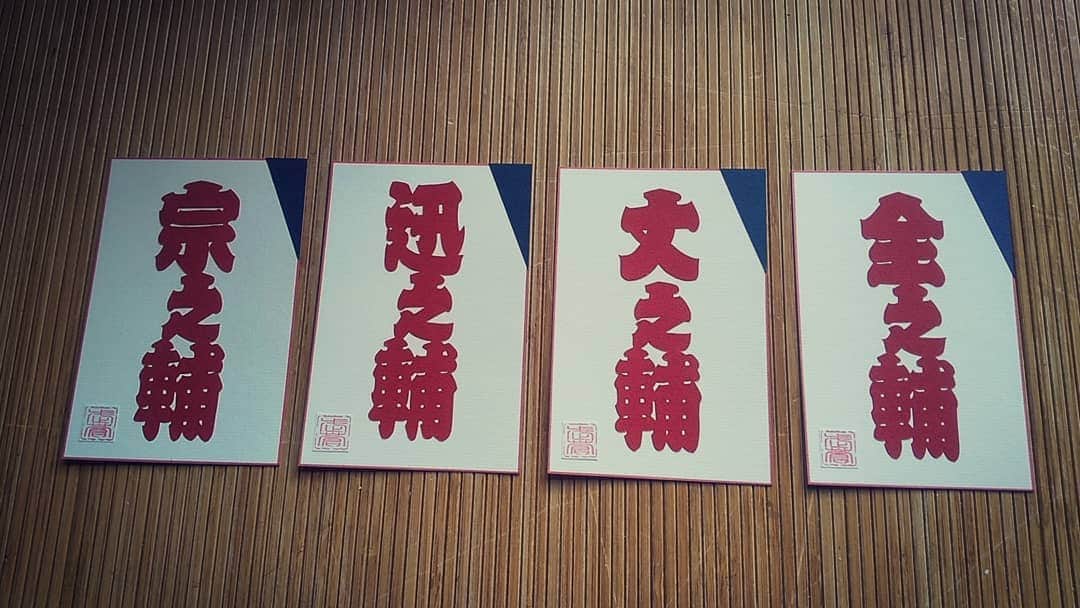 宗之輔
迅之輔
丈之輔
金之輔